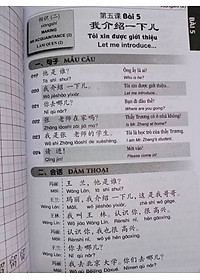 相识（二）
xiāngshí
MAKING
AN ACQUAINTANCE (2)
LÀM QUEN (2)
第五课 Bài 5
我介绍一下儿
Tôi xin được giới thiệu
Let me introduce...
BÀI 5
一、句子 MẪU CÂU
他是谁?
Tā shì shuí?
Ông ấy là ai?
Who is he?
我介绍一下儿。
Wǒ jièshào yíxiàr.
Tôi xin được giới thiệu...
Let me introduce...
你去哪儿?
Nǐ qù nǎr?
Bạn đi đâu đấy?
Where are you going?
张老师在家吗?
Zhāng lǎoshī zài jiā ma?
Thầy Trương có ở nhà không?
Is Mr. Zhang at home?
我是张老师的学生。
Wǒ shì Zhāng lǎoshī de xuésheng.
Tôi là học trò của thầy Trương.
I am Mr. Zhang's student.
请进!
Qǐng jìn!
Mời vào!
Please come in!
二、会话 ĐÀM THOẠI
玛丽: 王兰，他是谁?
Wáng Lán, tā shì shuí?
王兰: 玛丽，我介绍一下儿，这是我哥哥。
王林: 我叫王林。认识你很高兴。
玛丽: 认识你，我也很高兴。
王兰: 你去哪儿?
Nǐ qù nǎr?
玛丽: 我去北京大学。你们去哪儿?